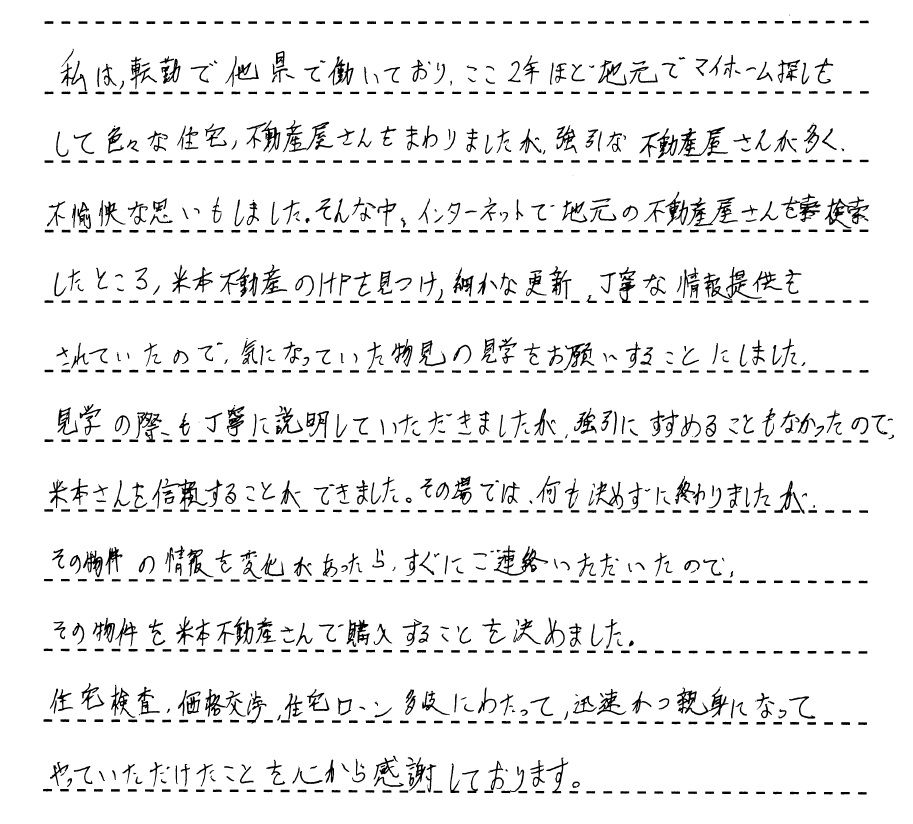 私は、転勤で他県で働いており、ここ2年ほど地元でマイホーム探しを
して色々な住宅、不動産屋さんをまわりましたが、強引な不動産屋さんが多く、
不愉快な思いもしました。そんな中、インターネットで地元の不動産屋さんを検索
したところ、米本不動産のHPを見つけ、細かな更新、丁寧な情報提供を
されていたので、気になっていた物見の見学をお願いすることにしました。
見学の際も丁寧に説明していただきましたが、強引にすすめることもなかったので、
米本さんを信頼することができました。その場では、何も決めずに終わりましたが、
その物件の情報を変化があったら、すぐにご連絡いただいたので、
その物件を米本不動産さんで購入することを決めました。
住宅検査、価格交渉、住宅ローン多岐にわたって、迅速かつ親身になって
やっていただけたことを心から感謝しております。